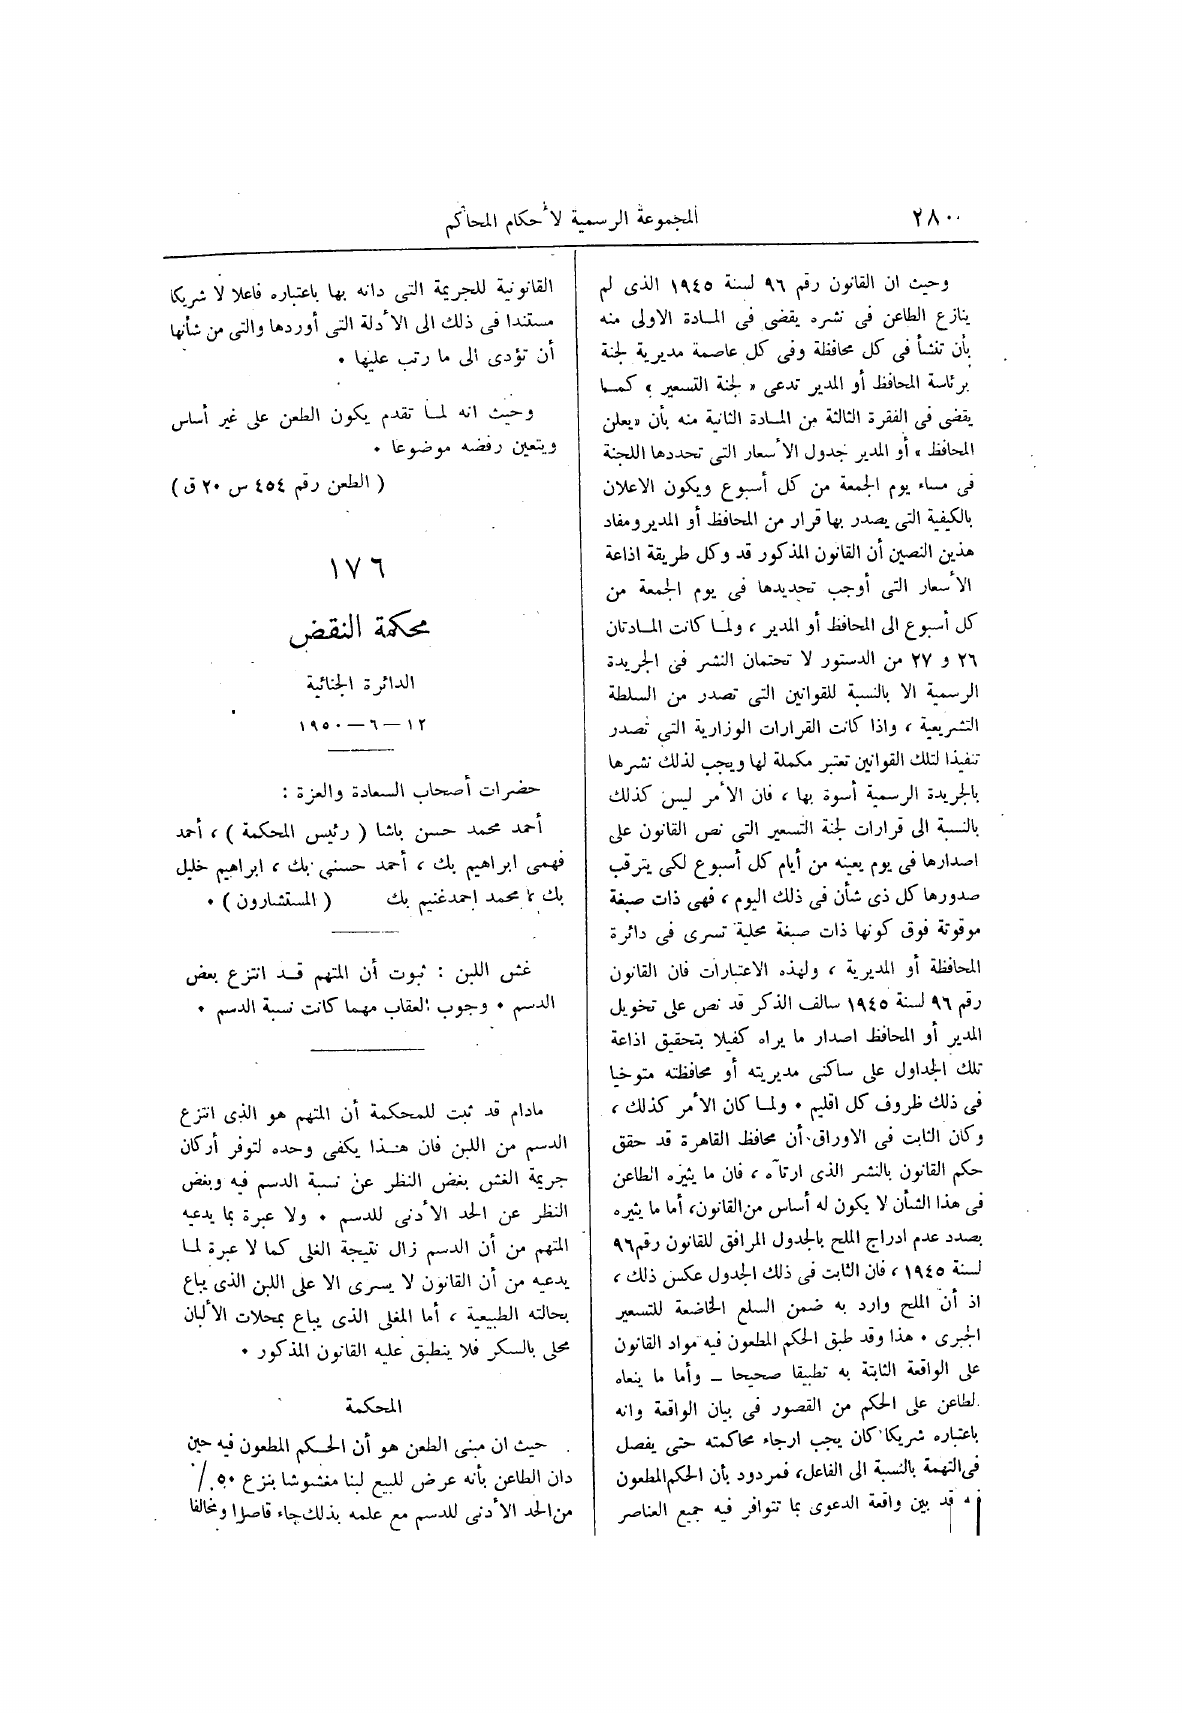 ٢٨٠٠
المجموعة الرسمية لأحكام المحاكم
وحيث ان القانون رقم ٩٦ لسنة ١٩٤٥ الذى لم
ينازع الطاعن فى نشره يقضى فى المادة الاولى منه
بأن تنشأ فى كل محافظة وفى كل عاصمة مديرية لجنة
برئاسة المحافظ أو المدير تدعى « لجنة التسعير » كما
يقضى فى الفقرة الثالثة من المادة الثانية منه بأن «يعلن
المحافظ » أو المدير جدول الأسعار التى تحددها اللجنة
فى مساء يوم الجمعة من كل أسبوع ويكون الاعلان
بالكيفية التى يصدر بها قرار من المحافظ أو المدير ومفاد
هذين النصين أن القانون المذكور قد وكل طريقة اذاعة
الأسعار التى أوجب تحديدها فى يوم الجمعة من
كل أسبوع الى المحافظ أو المدير ، ولما كانت المادتان
٢٦ و ٢٧ من الدستور لا تحتمان النشر فى الجريدة
الرسمية الا بالنسبة للقوانين التى تصدر من السلطة
التشريعية ، واذا كانت القرارات الوزارية التى تصدر
تنفيذا لتلك القوانين تعتبر مكملة لها ويجب لذلك نشرها
بالجريدة الرسمية أسوة بها ، فان الأمر ليس كذلك
بالنسبة الى قرارات لجنة التسعير التى نص القانون على
اصدارها فى يوم بعينه من أيام كل أسبوع لكى يترقب
صدورها كل ذى شأن فى ذلك اليوم ، فهى ذات صبغة
موقوتة فوق كونها ذات صبغة محلية تسرى فى دائرة
المحافظة أو المديرية ، ولهذه الاعتبارات فان القانون
رقم ٩٦ لسنة ١٩٤٥ سالف الذكر قد نص على تخويل
المدير أو المحافظ اصدار ما يراه كفيلا بتحقيق اذاعة
تلك الجداول على ساكنى مديريته أو محافظته متوخيا
فى ذلك ظروف كل اقليم • ولما كان الأمر كذلك ،
وكان الثابت فى الاوراق أن محافظ القاهرة قد حقق
حكم القانون بالنشر الذى ارتآه ، فان ما يثيره الطاعن
فى هذا الشأن لا يكون له أساس من القانون، أما ما يثيره
بصدد عدم ادراج الملح بالجدول المرافق للقانون رقم ٩٦
لسنة ١٩٤٥ ، فان الثابت فى ذلك الجدول عكس ذلك ،
اذ أن الملح وارد به ضمن السلع الخاضعة للتسعير
الجبرى • هذا وقد طبق الحكم المطعون فيه مواد القانون
على الواقعة الثابتة به تطبيقا صحيحا ـ وأما ما ينعاه
لطاعن على الحكم من القصور فى بيان الواقعة وانه
باعتباره شريكا كان يجب ارجاء محاكمته حتى يفصل
فى التهمة بالنسبة الى الفاعل، فمردود بأن الحكم المطعون
ه قد بين واقعة الدعوى بما تتوافر فيه جميع العناصر
القانونية للجريمة التى دانه بها باعتباره فاعلا لا شريكا
مستندا فى ذلك الى الأدلة التى أوردها والتى من شأنها
أن تؤدى الى ما رتب عليها •
وحيث انه لما تقدم يكون الطعن على غير أساس
ويتعين رفضه موضوعا •
( الطعن رقم ٤٥٤ س ٢٠ ق )
١٧٦
محكمة النقض
الدائرة الجنائية
١٢ – ٦ – ١٩٥٠
حضرات أصحاب السعادة والعزة :
أحمد محمد حسن باشا ( رئيس المحكمة ) ، أحمد
فهمى ابراهيم بك ، أحمد حسنى بك ، ابراهيم خليل
بك ، محمد احمد غنيم بك ( المستشارون ) •
غش اللبن : ثبوت أن المتهم قد انتزع بعض
الدسم • وجوب العقاب مهما كانت نسبة الدسم •
مادام قد ثبت للمحكمة أن المتهم هو الذى انتزع
الدسم من اللبن فان هذا يكفى وحده لتوفر أركان
جريمة الغش بغض النظر عن نسبة الدسم فيه وبغض
النظر عن الحد الأدنى للدسم • ولا عبرة بما يدعيه
المتهم من أن الدسم زال نتيجة الغلى كما لا عبرة لما
يدعيه من أن القانون لا يسرى الا على اللبن الذى يباع
بحالته الطبيعية ، أما المغلى الذى يباع بمحلات الألبان
محلى بالسكر فلا ينطبق عليه القانون المذكور •
المحكمة
حيث ان مبنى الطعن هو أن الحكم المطعون فيه حين
دان الطاعن بأنه عرض للبيع لبنا مغشوشا بنزع ٥٠ ./·
من الحد الأدنى للدسم مع علمه بذلك جاء قاصرا ومخالفا